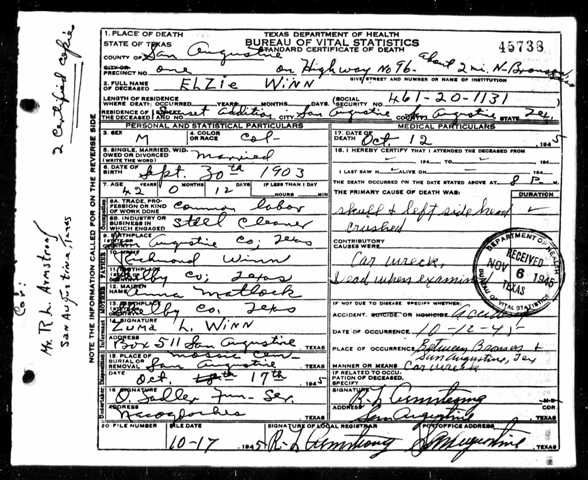 1. PLACE OF DEATH
STATE OF TEXAS
TEXAS DEPARTMENT OF HEALTH
BUREAU OF VITAL STATISTICS
STANDARD CERTIFICATE OF DEATH
45738
COUNTY OF San Augustine
CITY OR PRECINCT NO. one on Highway No 96 about 2 mi. N.
GIVE STREET AND NUMBER OR NAME OF INSTITUTION
2. FULL NAME OF DECEASED ELZie WiNN
LENGTH OF RESIDENCE WHERE DEATH OCCURRED YEARS MONTHS DAYS
SOCIAL SECURITY NO. 461-20-1131
RESIDENCE OF THE DECEASED STREET AND NO. Sunset Addition CITY San Augustine COUNTY San Augustine STATE Tex
PERSONAL AND STATISTICAL PARTICULARS
MEDICAL PARTICULARS
3. SEX M
4. COLOR OR RACE Col-
17. DATE OF DEATH Oct. 12 1945
5. SINGLE, MARRIED, WIDOWED OR DIVORCED married
18. I HEREBY CERTIFY THAT I ATTENDED THE DECEASED FROM
194 TO 194
6. DATE OF BIRTH Sept. 30th 1903
I LAST SAW H ALIVE ON 194
7. AGE YEARS 42 MONTHS 0 DAYS 12 IF LESS THAN 1 DAY HOURS MIN
THE DEATH OCCURRED ON THE DATE STATED ABOVE AT 8 P. M.
8A. TRADE, PROFESSION OR KIND OF WORK DONE common labor
THE PRIMARY CAUSE OF DEATH WAS:
DURATION
8B. INDUSTRY OR BUSINESS IN WHICH ENGAGED Steel Cleaner
skull & left side head crushed
9. BIRTHPLACE San Augustine Co, Texas
CONTRIBUTORY CAUSES WERE
10. NAME Richmond Winn
Car wreck,
11. BIRTHPLACE Shelby Co; Texas
Dead when examined
12. MAIDEN NAME Matlock
13. BIRTHPLACE Shelby Co. Texas
IF NOT DUE TO DISEASE SPECIFY WHETHER:
ACCIDENT, SUICIDE OR HOMICIDE Accident
14. SIGNATURE Zuma L. WiNN
DATE OF OCCURRENCE 10-12-45
ADDRESS Box 511 San Augustine TEXAS
PLACE OF OCCURRENCE Between Bronson & San Augustine, Tex
15. PLACE OF BURIAL OR REMOVAL San Augustine TEXAS
MANNER OR MEANS Car wreck
DATE Oct. 17th 1945
IF RELATED TO OCCUPATION OF DECEASED, SPECIFY
SIGNATURE Fun. Ser.
R. L. Armstrong
ADDRESS Nacogdoches TEXAS
San Augustine TEXAS
20 FILE NUMBER
FILE DATE 10-17 1945
SIGNATURE OF LOCAL REGISTRAR R. L. Armstrong
POST OFFICE ADDRESS San Augustine TEXAS
DEPARTMENT OF HEALTH
RECEIVED
NOV 6 1945
TEXAS
BUREAU OF VITAL STATISTICS
NOTE THE INFORMATION CALLED FOR ON THE REVERSE SIDE
2 Certified copies
Mr. R. L. Armstrong
San Augustine, Texas